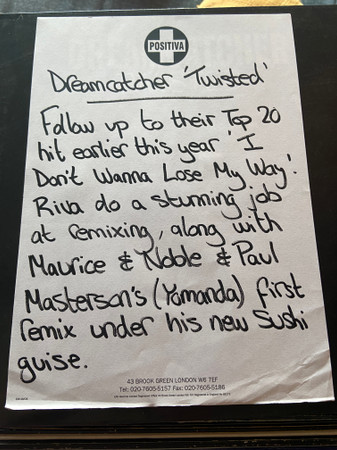 POSITIVA
Dreamcatcher 'Twisted'
Follow up to their Top 20
hit earlier this year 'I
Don't Wanna Lose My Way'.
Riva do a stunning job
at remixing, along with
Maurice & Noble & Paul
Masterson's (Yomanda) first
remix under his new Sushi
guise.
43 BROOK GREEN LONDON W6 7EF
Tel: 020-7605-5157 Fax: 020-7605-5186